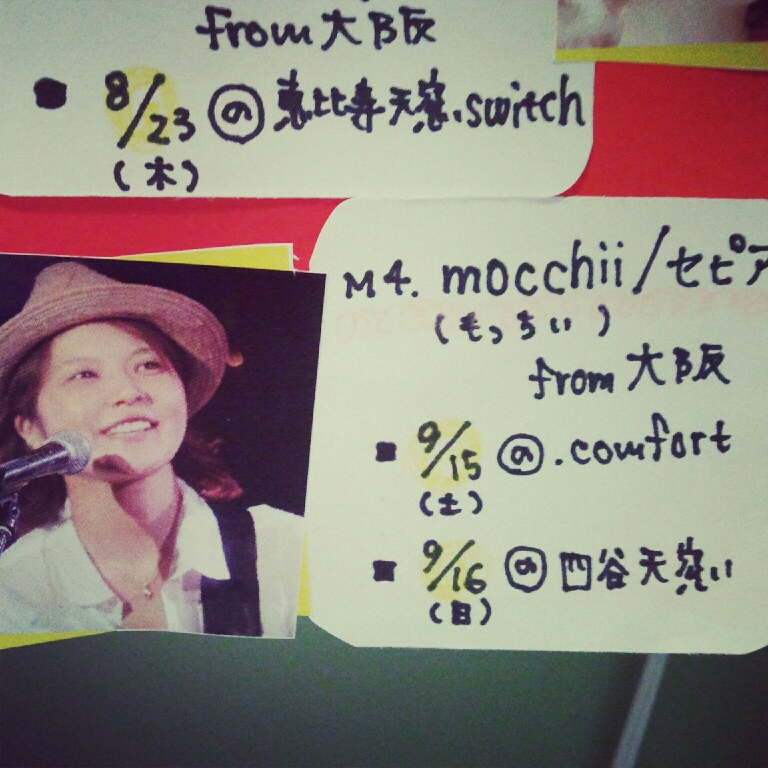 from 大阪
■ 8/23 @の 恵比寿天窓.switch
(木)
M4. mocchii/セピア
(もっちぃ)
from 大阪
■ 9/15 @の .comfort
(土)
■ 9/16 @の 四谷天窓
(日)